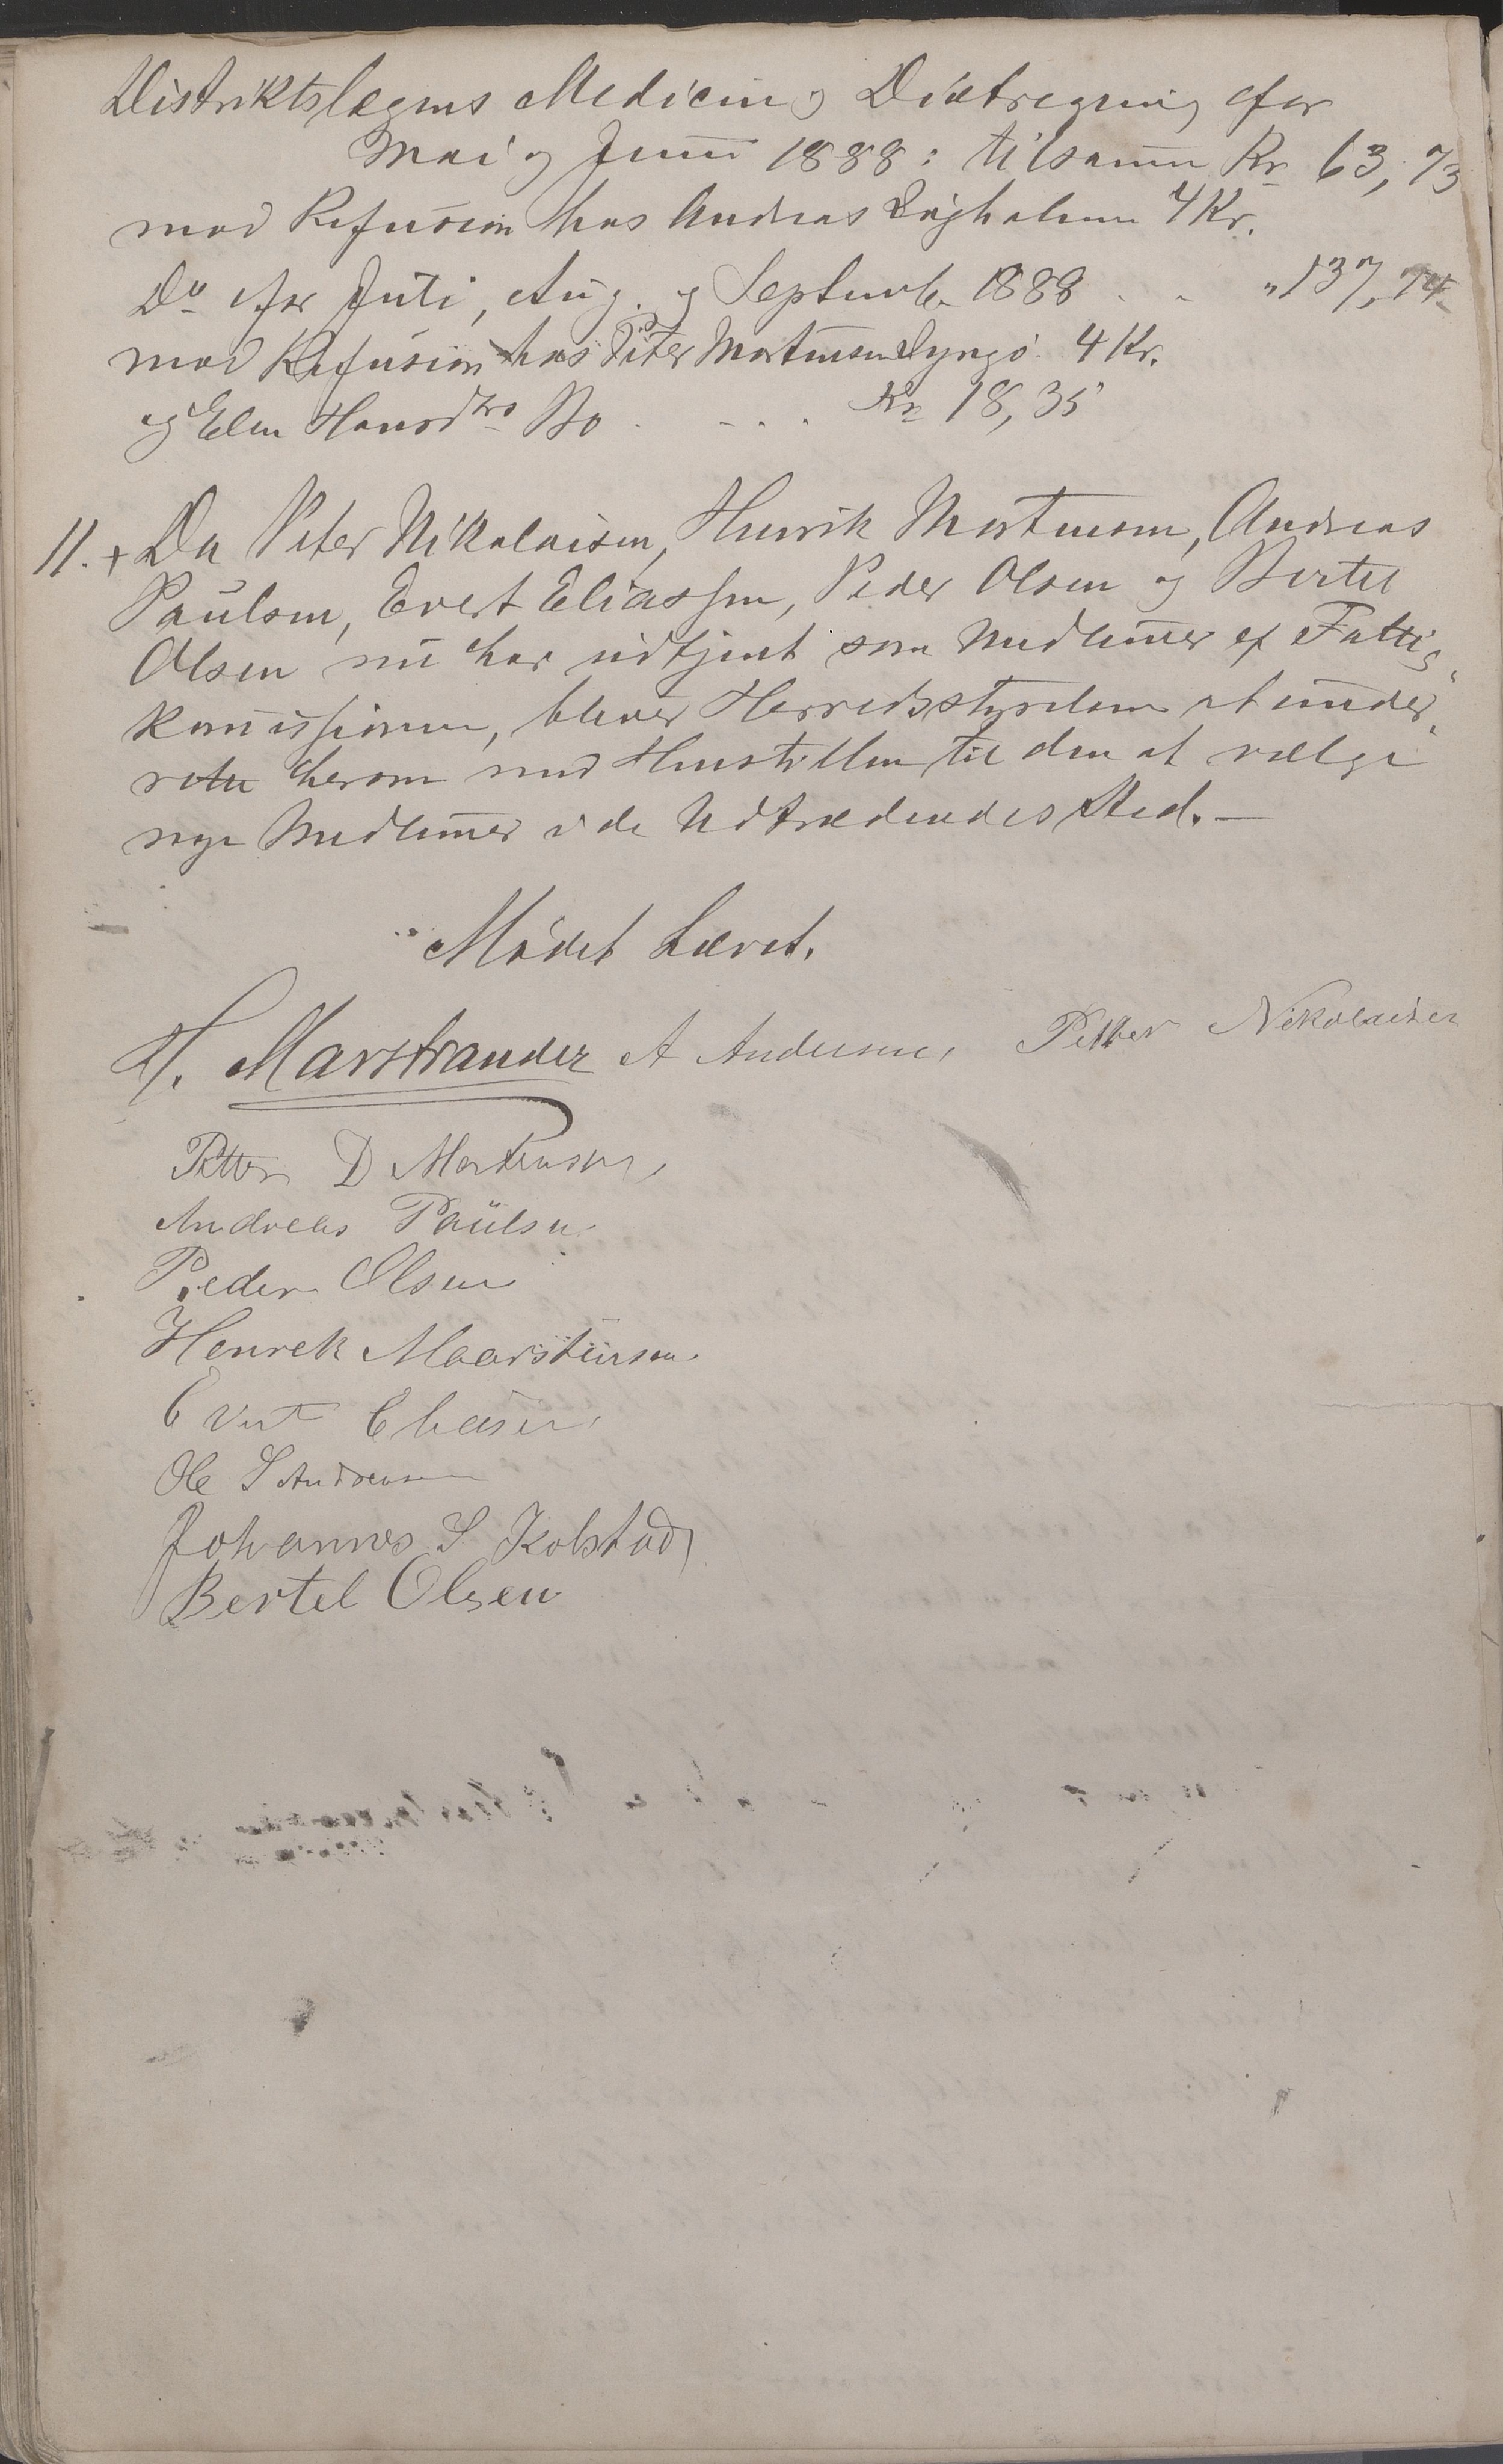 Distriktslægens Medicin og Diætregning for
Mai og Juni 1888: tilsamm Kr 63,73
mod Refusion hos Andreas 4 Kr.
Do for Juli, Aug. og Septembr 1888 . . " 137,74
mod Refusion hos Peter Mortensen Lyngø. 4 Kr.
og Elen Hansdtrs Bo . - . . Kr 18,35
11. + Da Peter Nikolaisen, Henrik Mortensen, Andreas
Paulsen, Evert Eliassen, Peder Olsen og Bertel
Olsen nu har udtjent som Medlemmer af Fattig-
kommissionen, bliver Herredsstyrelsen at under-
rette herom med Henstillen til den at vælge
nye Medlemmer i de Udtrædendes Sted. —
Mødet hævet.
H. Marstrander A Andersen, Petter Nikolaisen
Petter D Mortensen,
Andreas Paulsen
Peder Olsen
Henrek Maarstensen
Evert Eliasen
Ole S Andreasen
Johannes S Kolstad
Bertel Olsen